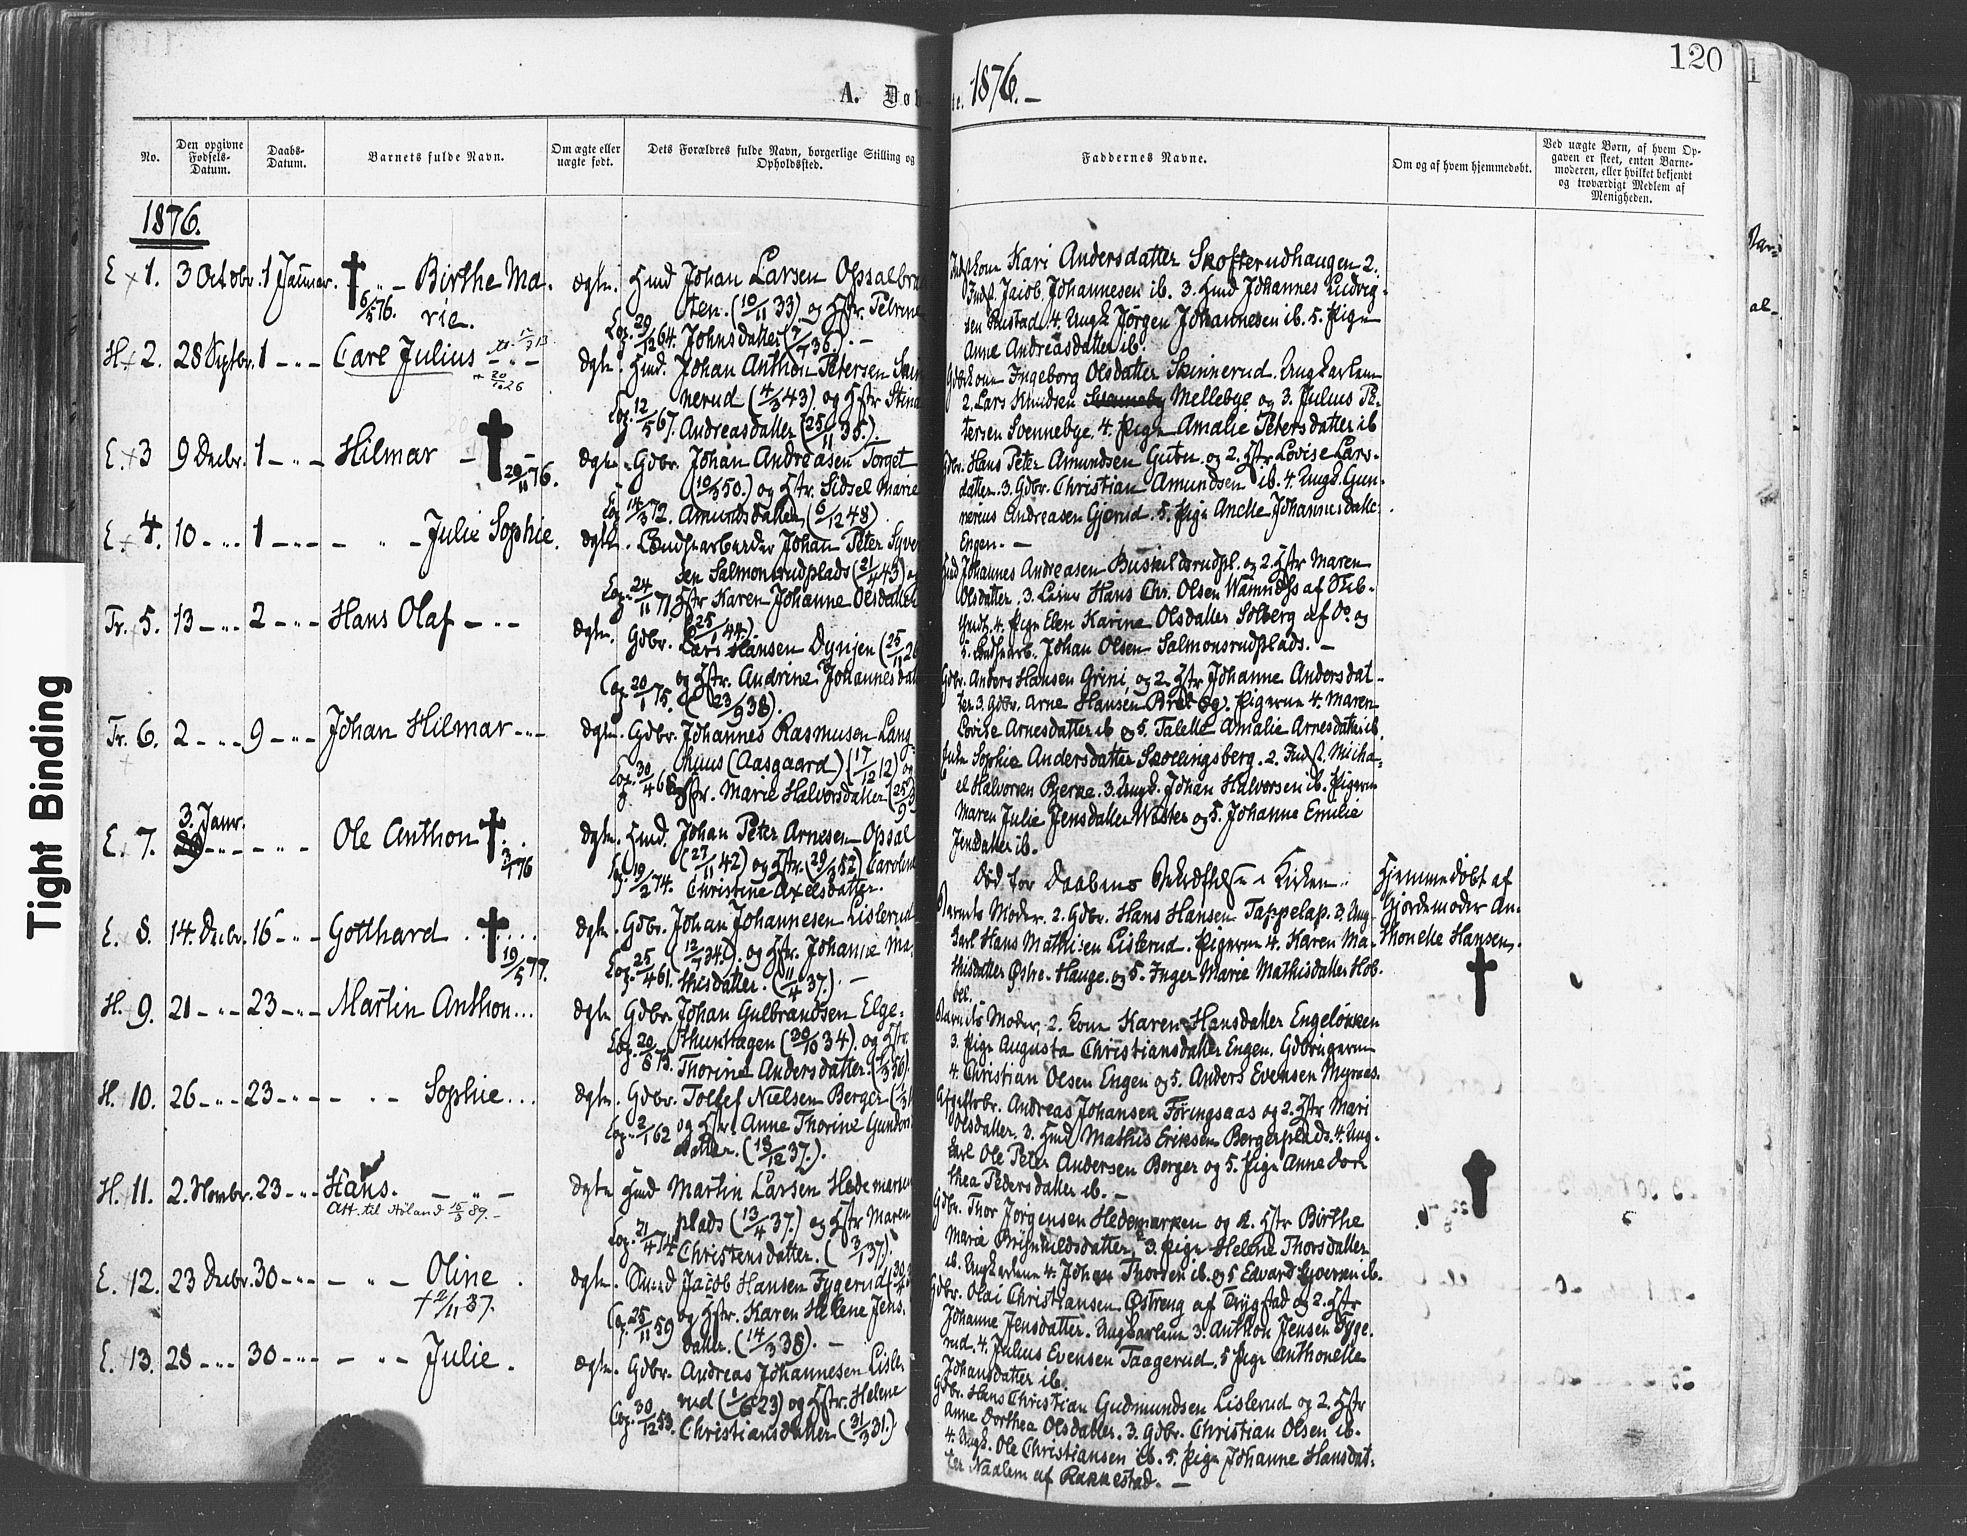 120
A. Døb
te. 1876.
No.
Den opgivne Fødsels-Datum.
Daabs-Datum.
Barnets fulde Navn.
Om ægte eller uægte født.
Dets Forældres fulde Navn, borgerlige Stilling og Opholdsted.
Faddernes Navne.
Om og af hvem hjemmedøbt.
Ved uægte Børn, af hvem Opgaven er skeet, enten Barnemoderen, eller hvilket bekjendt og troværdigt Medlem af Menigheden.
1876.
E. 1. 3 Octobr. 1 Januar. 6/5 76. Birthe Marie. ægte. Hmd Johan Larsen Opsalbra
ten. (10/11 33) og Hstr. Petrine
29/12 64. Johnsdatter (7/7 36). —
Kari Andersdatter Skofterudhaugen 2.
Indst. Jacob Johannesen ib. 3. Hmd Johannes Ludvig-
sen Rustad. 4. Ungk Jørgen Johannesen ib. 5. Pige
Anne Andreasdatter ib.
H. 2. 28 Septbr. 1 Carl Julius ægte. Hmd. Johan Anthon Petersen Skin
nerud (4/3 43) og Hstr Stina
12/5 67. Andreasdatter (25/11 35.).
Gdbrkone Ingeborg Olsdatter Skinnerud. Ungkarlene
2. Lars Knudsen Mellebye og 3. Julius Pe-
tersen Svennebye. 4. Pige Amalie Petersdatter ib
E. 3 9 Decbr. 1 Hilmar 20/11 76. ægte. Gdbr. Johan Andreasen Torget
(10/3 50.) og Hstr. Sidsel Marie
14/3 72. Amundsdatter (6/12 48)
Gdbr. Hans Peter Amundsen Gutu. og 2. Hstr Lovise Lars-
datter. 3. Gdbr. Christian Amundsen ib. 4. Ungk. Gun-
nerius Andreasen Gjerud. 5. Pige Anette Johannesdatter
Engen. —
E. 4. 10 1 Julie Sophie. ægte. Johan Peter Syver
sen Salmonsrudplads (21/4 43) og
24/11 71. Hstr Karen Johanne Olsdatter
(25/1 44.).
Hmd Johannes Andreasen Buskildsrudpl. og 2. Hstr Maren
Olsdatter. 3. Hans Chr. Olsen
4. Pige Elen Karine Olsdatter Solberg af do og
5. Johan Olsen Salmonsrudplads. —
Tr. 5. 13 2 Hans Olaf ægte. Gdbr. Lars Hansen Dynjen (25/11 26
og Hstr. Andrine Johannesdat
20/1 75. (23/9 38).
Gdbr. Anders Hansen Grini, og 2. Hstr Johanne Andersdat-
ter. 3. Gdbr. Arne Hansen Pigerne 4. Maren
Lovise Arnesdatter ib og 5. Talette Amalie Arnesdatter ib.
Tr. 6. 2 9 Johan Hilmar ægte. Gdbr. Johannes Rasmusen Lang-
huus (Aasgaard) (17/12 12) og
30/4 68. Hstr. Marie Halvorsdatter
Sophie Andersdatter Skollingsberg. 2. Indst. Micha-
el Halvorsen Bjerke. 3. Ungk. Johan Halvorsen ib. Pigerne
Maren Julie Jensdatter og 5. Johanne Emilie
Jensdatter ib.
E. 7. 3. Janr. Ole Anthon 3/1 76 ægte. Hmd. Johan Peter Arnesen Opsal
(27/11 42) og Hstr. (29/3 52) Caroline
19/2 74. Christine Axelsdatter.
Død før Daabens Bekræftelse i Kirken.
Hjemmedøbt af
Gjordemoder An-
thonette Hansen.
E. 8. 14. Decbr. 16 Gotthard 19/5 77. ægte. Gdbr. Johan Johannesen Lislerud
(12/7 34). og Hstr. Johanne Ma-
25/4 61. thisdatter. (11/4 37.). —
Barnets Moder. 2. Gdbr. Hans Hansen Tappelap. 3. Ung-
karl Hans Mathisen Lislerud. Pigerne 4. Karen Ma-
thisdatter Østre Hauge. og 5. Inger Marie Mathisdatter Hob-
bel.
H. 9. 21 23 Martin Anthon ægte Gdbr Johan Gulbrandsen Elge-
thunhagen (30/10 34). og Hstr.
20/8 73. Thorine Andersdatter.
Barnets Moder, 2. Kone Karen Hansdatter Engeløkken
3. Pige Augusta Christiansdatter Engen. Gdbrugerne
4. Christian Olsen Engen og 5. Anders Evensen Myraas.
H. 10. 26 23 Sophie ægte. Gdbr. Tollef Nielsen Berger
2/1 62 og Hstr. Anne Thorine Gunders
datter. (13/12 37.).
Andreas Johansen Føringsaas og 2. Hstr Mari
Olsdatter. 3. Hmd Mathis Eriksen Bergerplads. 4. Ung-
karl Ole Peter Andersen Berger og 5. Pige Anne Dor
thea Pedersdatter ib. —
H. 11. 2. Novbr. 23 Hans.
Att. til Høland 15/3 89. —
ægte Hmd Martin Larsen Hedemarken
plads (13/4 37.) og Hstr Maren
21/4 74 Christensdatter. (3/1 37.).
Gdbr. Thor Jørgensen Hedemarken og 2. Hstr Birthe
Maria Brynhildsdatter, 3. Pige Helene Thorsdatter
ib. Ungkarlene 4. Johan Thorsen ib. og 5 Edvard Syversen ib.
E. 12. 23 Decbr. 30 Oline
† 2/11 37.
ægte. Jacob Hansen Fygerud
25/11 59 og Hstr. Karen Helene Jens-
datter. (14/3 38). —
Gdbr. Olai Christiansen Østreng af Trygstad og 2. Hstr
Johanne Jensdatter. Ungkarlene 3. Anthon Jensen Fyge-
rud. 4. Julius Evensen Taagerud. 5 Pige Anthonette
Johansdatter ib.
E. 13. 28 30 Julie. ægte. Gdbr. Andreas Johannesen Lisle-
rud (1/6 23) og Hstr. Helene
30/12 53. Christiansdatter (31/3 31.)
Gdbr. Hans Christian Gudmundsen Lislerud og 2. Hstr
Anne Dorthea Olsdatter. 3. Gdbr. Christian Olsen ib.
4. Ungk. Ole Christiansen ib. 5. Pige Johanne Hansdat-
ter Naalem af Rakkestad. —
Tight Binding